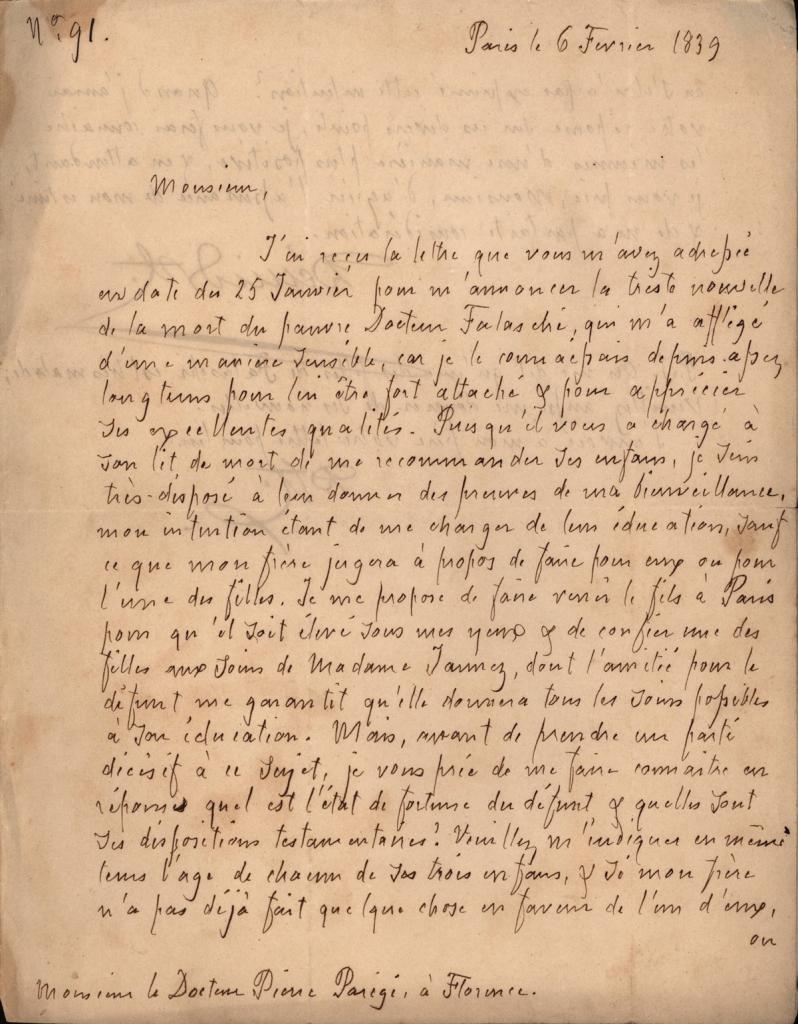 Nº 91.
Paris le 6 Fevrier 1839
Monsieur,
J'ai reçu la lettre que vous m'avez adressée
en date du 25 Janvier pour m'annoncer la triste nouvelle
de la mort du pauvre Docteur Falaschi, qui m'a affligé
d'une manière sensible, car je le connaissais depuis assez
longtems pour lui être fort attaché & pour apprécier
ses excellentes qualités. Puisqu'il vous a chargé à
son lit de mort de me recommander ses enfans, je suis
très-disposé à leur donner des preuves de ma bienveillance,
mon intention étant de me charger de leur éducation, sauf
ce que mon frère jugera à propos de faire pour eux ou pour
l'une des filles. Je me propose de faire venir le fils à Paris
pour qu'il soit élevé sous mes yeux & de confier une des
filles aux soins de Madame Jaunez, dont l'amitié pour le
défunt me garantit qu'elle donnera tous les soins possibles
à son éducation. Mais, avant de prendre un parti
décisif à ce sujet, je vous prie de me faire connaître en
réponse quel est l'état de fortune du défunt & quelles sont
ses dispositions testamentaires? Veuillez m'indiquer en même
tems l'age de chacun de ses trois enfans, & si mon frère
n'a pas déjà fait quelque chose en faveur de l'un d'eux,
ou
Monsieur le Docteur Pierre Parigi, à Florence.